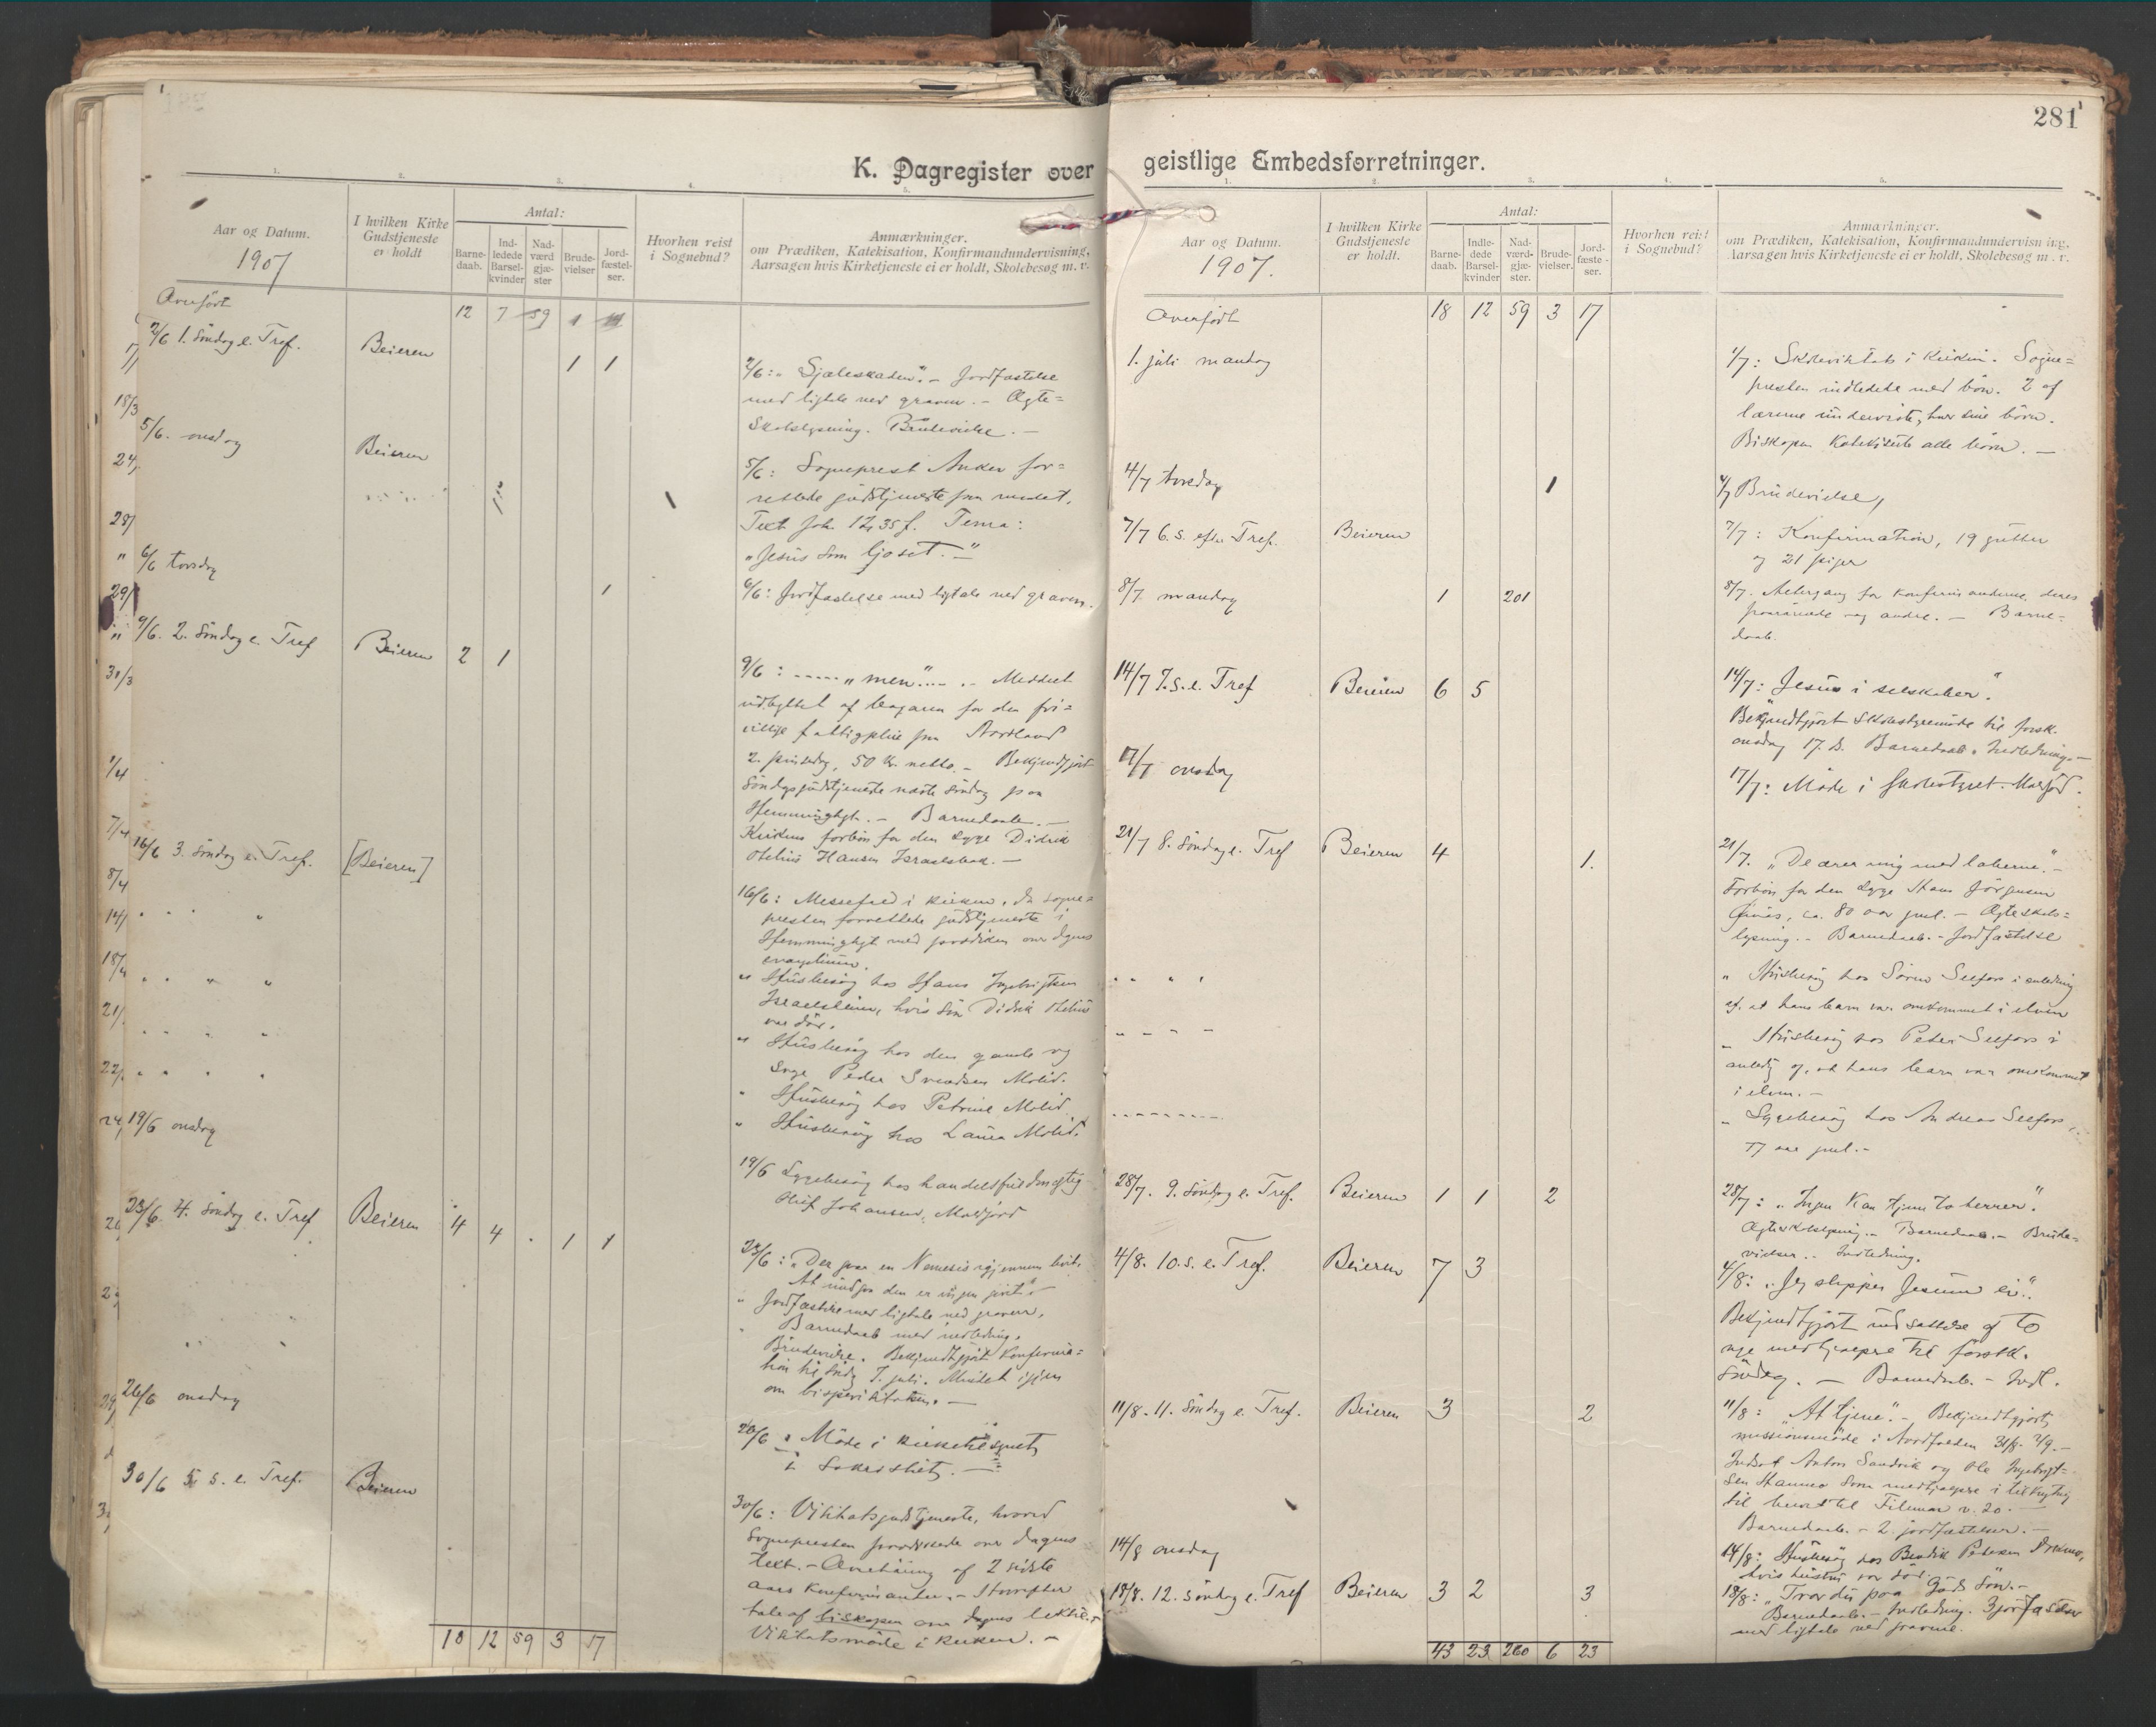 K. Dagregister over
1. 2. 3. 4. 5.
Aar og Datum.
1907
I hvilken Kirke
Gudstjeneste
er holdt
Antal:
Barne-
daab.
Ind-
ledede
Barsel-
kvinder
Nad-
værd
gjæ-
ster
Brude-
vielser
Jord-
fæstel-
ser.
Hvorhen reist
i Sognebud?
Anmærkninger.
om Prædiken, Katekisation, Konfirmandundervisning,
Aarsagen hvis Kirketjeneste ei er holdt, Skolebesøg m. v.
Overført 12 7 59 1 14
2/6 1. Søndag e. Tref. Beieren 1 1
2/6: "Sjæleskaden". - Jordfæstelse
med ligtale ved graven. - Ægte=
skabslysning. Brudevielse. -
5/6. onsdag Beieren
5/6: Sogneprest Anker for=
rettede gudstjeneste paa
Text Joh. 12, 35 f. Tema:
"Jesus som ljoset." -
" 6/6 torsdag 1
6/6: Jordfæstelse med ligtale ved graven.
9/6. 2. Søndag e. Tref Beieren 2 1
9/6: ..... "men" .... - Meddelt
udbyttet af for den fri=
villige fattigpleie fra Nordland
2. pinsedag, 50 Kr. netto. - Bekjendtgjort
Søndagsgudstjeneste næste Søndag paa
- Barnedaab. -
Kirkens forbøn for den syge Didrik
Otelius Hansen -
16/6 3. Søndag e. Tref. [Beieren]
16/6: Messefald i kirken, da sogne=
presten forrettede gudstjeneste i
med prædiken over dagens
evangelium.
" Husbesøg hos Hans Ingebrigtsen
hvis søn Didrik Otelius
var død.
" Husbesøg hos den gamle og
syge Peder Svendsen Molid.
" Husbesøg hos Petrine Molid.
" Husbesøg hos Laura Molid.
19/6 onsdag
19/6 Sygebesøg hos handelsfuldmægtig
Johansen, Moldjord
23/6. 4. Søndag e. Tref Beieren 4 4 . 1 1
23/6: "Der gaar en Nemesis igjennem livet,
At undgaa den er ingen givet" -
" Jordfæstelse med ligtale ved graven.
" Barnedaab med indledning.
Brudevielse. Bekjendtgjort Konfirma=
tion til Søndag 7. juli. Mindet igjen
om bispevisitatsen. -
26/6 onsdag
26/6: Møde i kirketilsynet
i Sakristiet. -
30/6 5 s. e. Tref. Beieren
30/6: Visitatsgudstjeneste, hvorved
Sognepresten prædikede over dagens
text. - Overhøring af 2 sidste
aars konfirmanter. - Herefter
tale af biskopen over dagens lektie. -
Visitatsmøde i kirken. -
18 12 59 3 17
281
geistlige Embedsforretninger.
1. 2. 3. 4. 5.
Aar og Datum.
1907.
I hvilken Kirke
Gudstjeneste
er holdt.
Antal:
Barne-
daab.
Indle-
dede
Barsel-
kvinder
Nad-
værd-
gjæ-
ster.
Brude-
vielser.
Jord-
fæste-
ser.
Hvorhen reist
i Sognebud?
Anmærkninger.
om Prædiken, Katekisation, Konfirmandundervisning,
Aarsagen hvis Kirketjeneste ei er holdt, Skolebesøg m. v.
Overført 18 12 59 3 17
1. juli mandag
1/7: Skolevisitats i kirken. Sogne=
presten indledede med bøn. 2 af
lærerne underviste, hver sine børn.
Biskopen katekiserte alle børn. -
4/7 torsdag 1
4/7 Brudevielse,
7/7 6. s. efter Tref. Beieren
7/7: Konfirmation, 19 gutter
og 21 piger
8/7 mandag 1 201
8/7. Altergang for konfirmanderne, deres
paarørende og andre. - Barne=
daab.
14/7 7. s. e. Tref Beieren 6 5
14/7: "Jesus i selskaber".
Bekjendtgjort Skolestyremøde til førstk.
onsdag 17. ds. Barnedaab. Indledning. -
17/7 onsdag
17/7: Møde i skolestyret. Moldjord.
21/7 8. Søndag e. Tref Beieren 4 1.
21/7. "De ærer mig med læberne". -
Forbøn for den syge Hans Jørgensen
ca. 80 aar gml. - Ægteskabs=
lysning. - Barnedaab. - Jordfæstelse
" Husbesøg hos Søren Selfors i anledning
af, at hans barn var omkommet i elven
" Husbesøg hos Peder Selfors i
anledng af, at hans barn var omkommet
i elven. -
" Sygebesøg hos Andreas Selfors,
77 aar gml. -
28/7. 9. Søndag e. Tref. Beieren 1 1 2
28/7: "Ingen kan tjene to herrer".
Ægteskabslysning. - Barnedaab. - Brude=
vielser. - Indledning.
4/8. 10. s. e. Tref. Beieren 7 3
4/8: "Jeg slipper Jesum ei".
Bekjendtgjort indsættelse af to
nye medhjælpere til førstk.
Søndag. - Barnedaab. - Indl.
11/8. 11. Søndag e. Tref. Beieren 3 2
11/8: "At tjene". - Bekjendtgjort
missionsmøde i Nordfolden 31/8. 2/9. -
Indsat Anton Sandvik og Ole Ingebrigt=
sen som medhjælpere i tilknytning
til brevet til Filemon v. 20. -
Barnedaab. - 2 jordfæstelser. -
14/8 onsdag
14/8: Husbesøg hos Bendik Petersen
hvis hustru var død.
18/8. 12. Søndag e. Tref Beieren 3 2 3
18/8: "Tror du paa Guds Søn. -
Barnedaab. - Indledning. 3 jordfæstelser
med ligtale ved gravene.
43 23 260 6 23